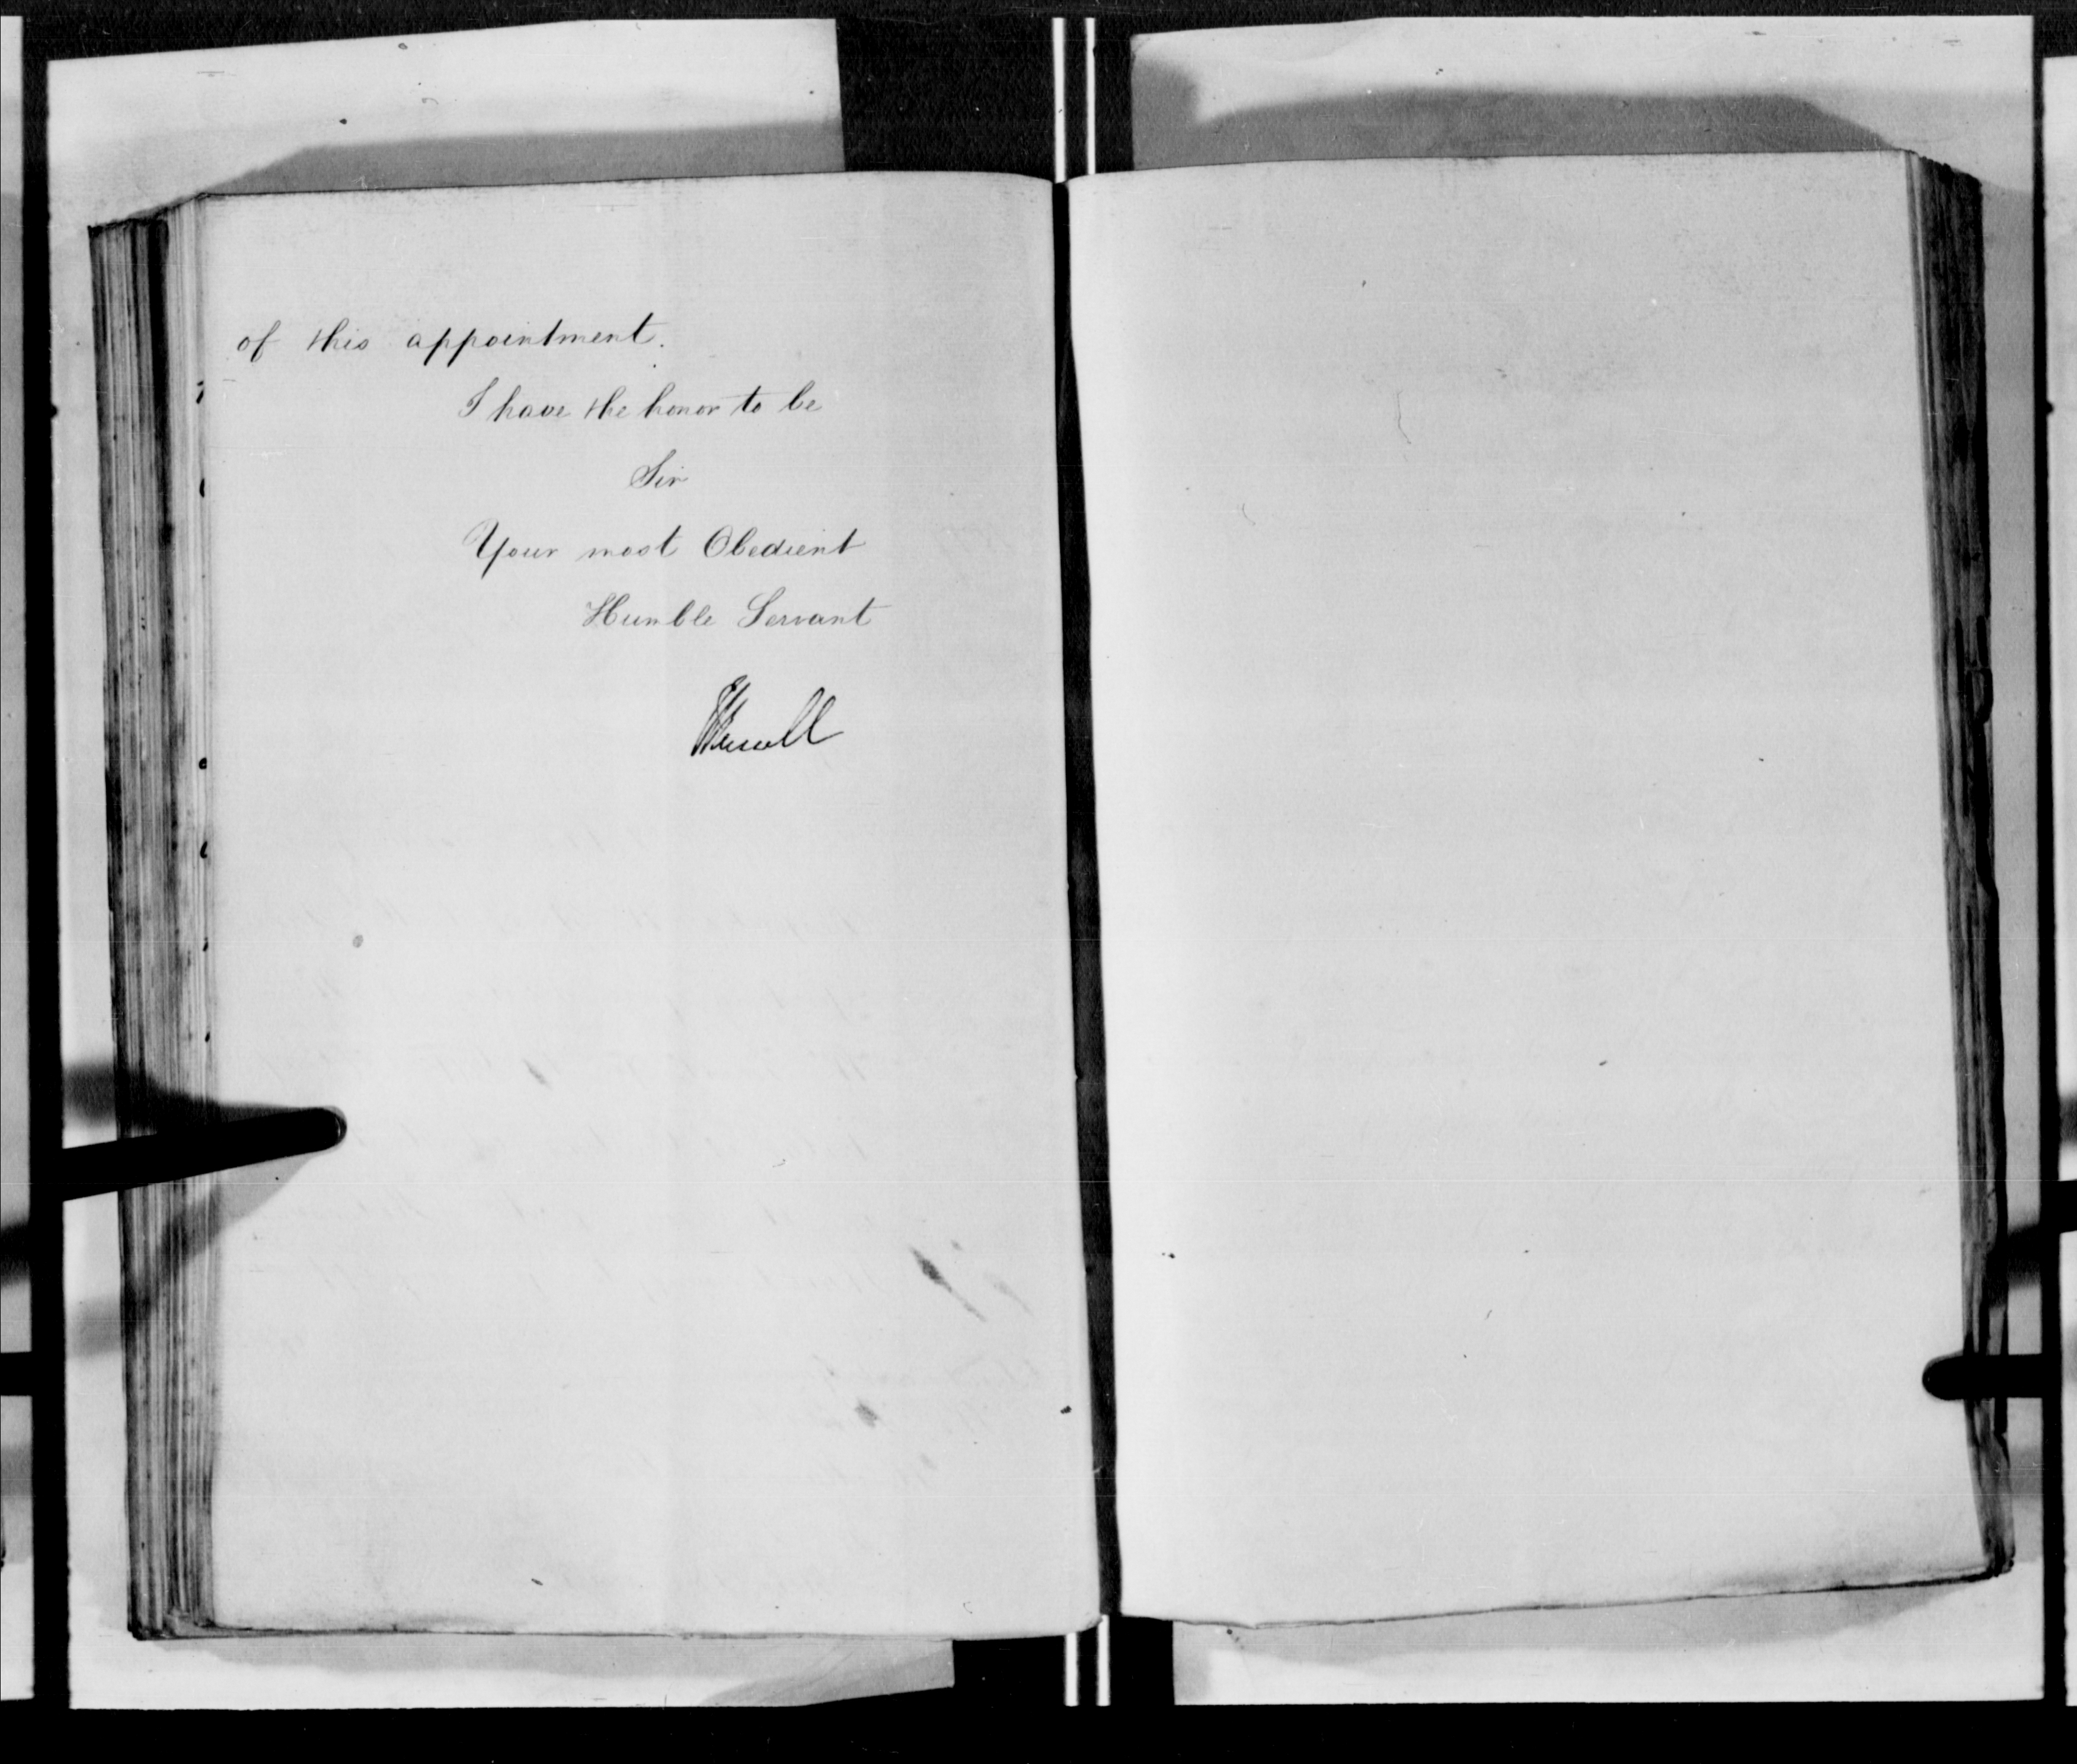 of this appointment.
I have the honor to be
Sir
Your most Obedient
Humble Servant